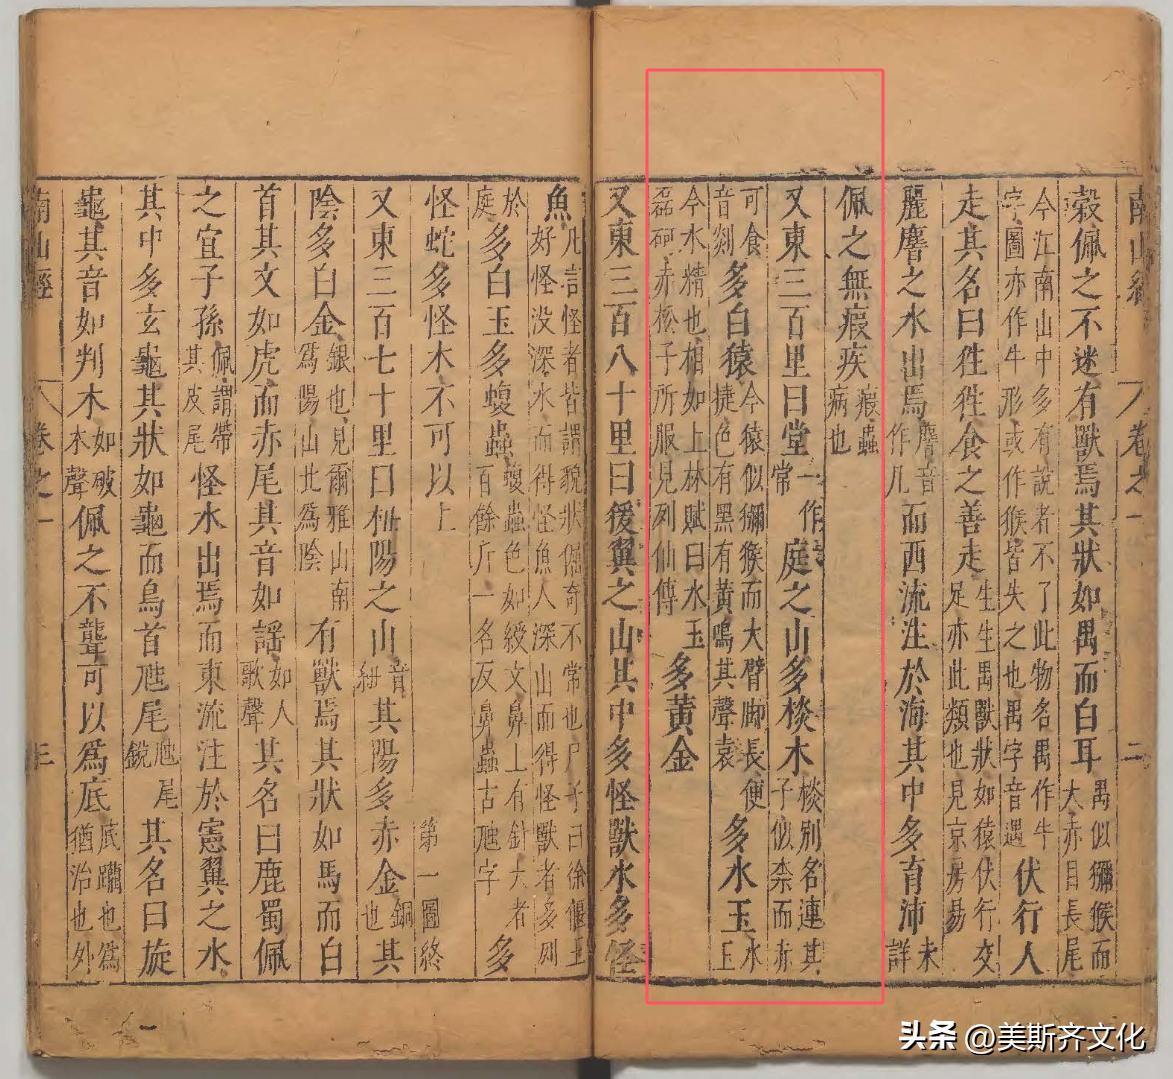 南山經 卷之一 二
穀佩之不迷有獸焉其狀如禺而白耳禺似獼猴而大赤目長尾
今江南山中多有說者不了此物名禺作牛字圖亦作牛形或作猴皆失之也禺字音遇伏行人
走其名曰狌狌食之善走生生禺獸狀如猿伏行交足亦此類也見京房易
麗𪊨之水出焉𪊨音作几而西流注於海其中多育沛未詳
佩之無瘕疾瘕蟲病也
又東三百里曰堂一作常庭之山多棪木棪別名連其子似柰而赤
可食音剡多白猿今猿似獼猴而大臂脚長便捷色有黑有黃鳴其聲哀多水玉水玉
今水精也相如上林賦曰水玉磊砢赤松子所服見列仙傳多黃金
又東三百八十里曰猨翼之山其中多怪獸水多怪
魚凡言怪者皆謂貌狀倔奇不常也尸子曰徐偃王好怪没深水而得怪魚人深山而得怪獸者多列
於庭多白玉多蝮蟲蝮蟲色如綬文鼻上有針大者百餘斤一名反鼻蟲古虺字多
怪蛇多怪木不可以上第一圖終
又東三百七十里曰杻陽之山音紐其陽多赤金銅也其
陰多白金銀也見爾雅山南爲陽山北爲陰有獸焉其狀如馬而白
首其文如虎而赤尾其音如謠如人歌聲其名曰鹿蜀佩
之宜子孫佩謂帶其皮尾怪水出焉而東流注於憲翼之水
其中多玄龜其狀如龜而鳥首虺尾虺尾銳其名曰旋
龜其音如判木如破木聲佩之不聾可以爲底底躪也爲猶治也外
南山經 卷之一 三
头条 @美斯齐文化